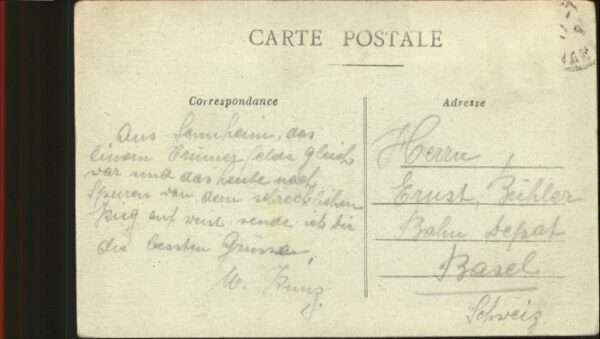 CARTE POSTALE
Correspondance
Aus Sennheim, das
einem Trümmerfelde gleich
war und das heute noch
Spuren von dem schrecklichen
Krieg auf weist sende ich dir
die besten Grüsse,
W. Kunz
Adresse
Herrn,
Ernst, Bühler
Bahn Depot
Basel
Schweiz